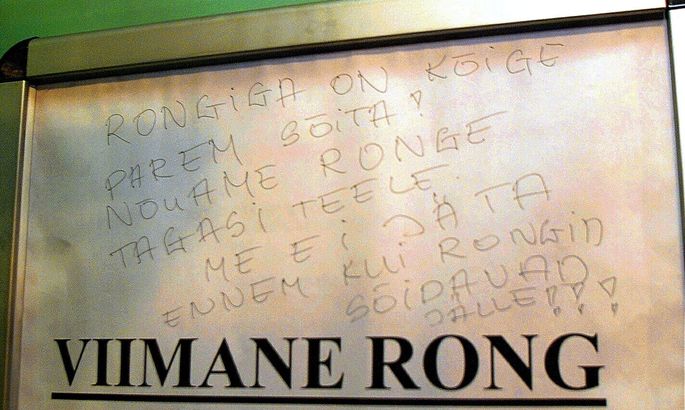 RONGiGA ON KÕIGE
PAREM SÕiTA!
NOUAME RONGE
TAGASi TEELE.
ME Ei JÄTA
ENNEM KUI RONGID
SÕiDAVAD
JÄLLE!!!
VIIMANE RONG